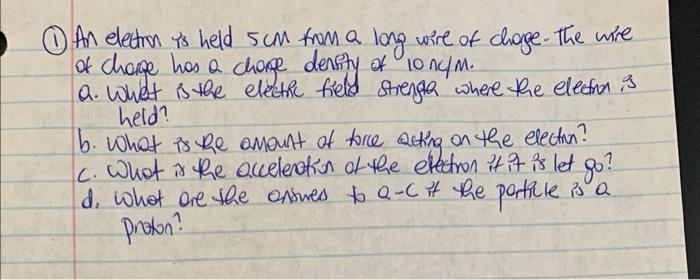 ① An electron is held 5cm from a long wire of charge. The wire
of charge has a charge density of 10 nC/M.
a. What is the electric field strength where the electron is
held?
b. What is the amount of force acting on the electron?
c. What is the acceleration of the electron if it is let go?
d. What are the answes to a-c if the particle is a
proton?